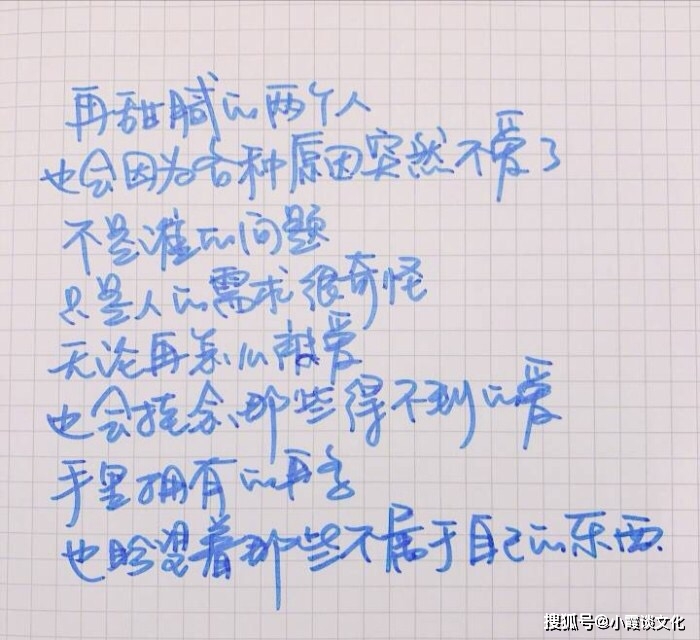 再甜腻的两个人
也会因为各种原因突然不爱了
不是谁的问题
只是人的需求很奇怪
无论再怎么被爱
也会挂念那些得不到的爱
手里拥有的再多
也盼望着那些不属于自己的东西
搜狐号@小霞谈文化